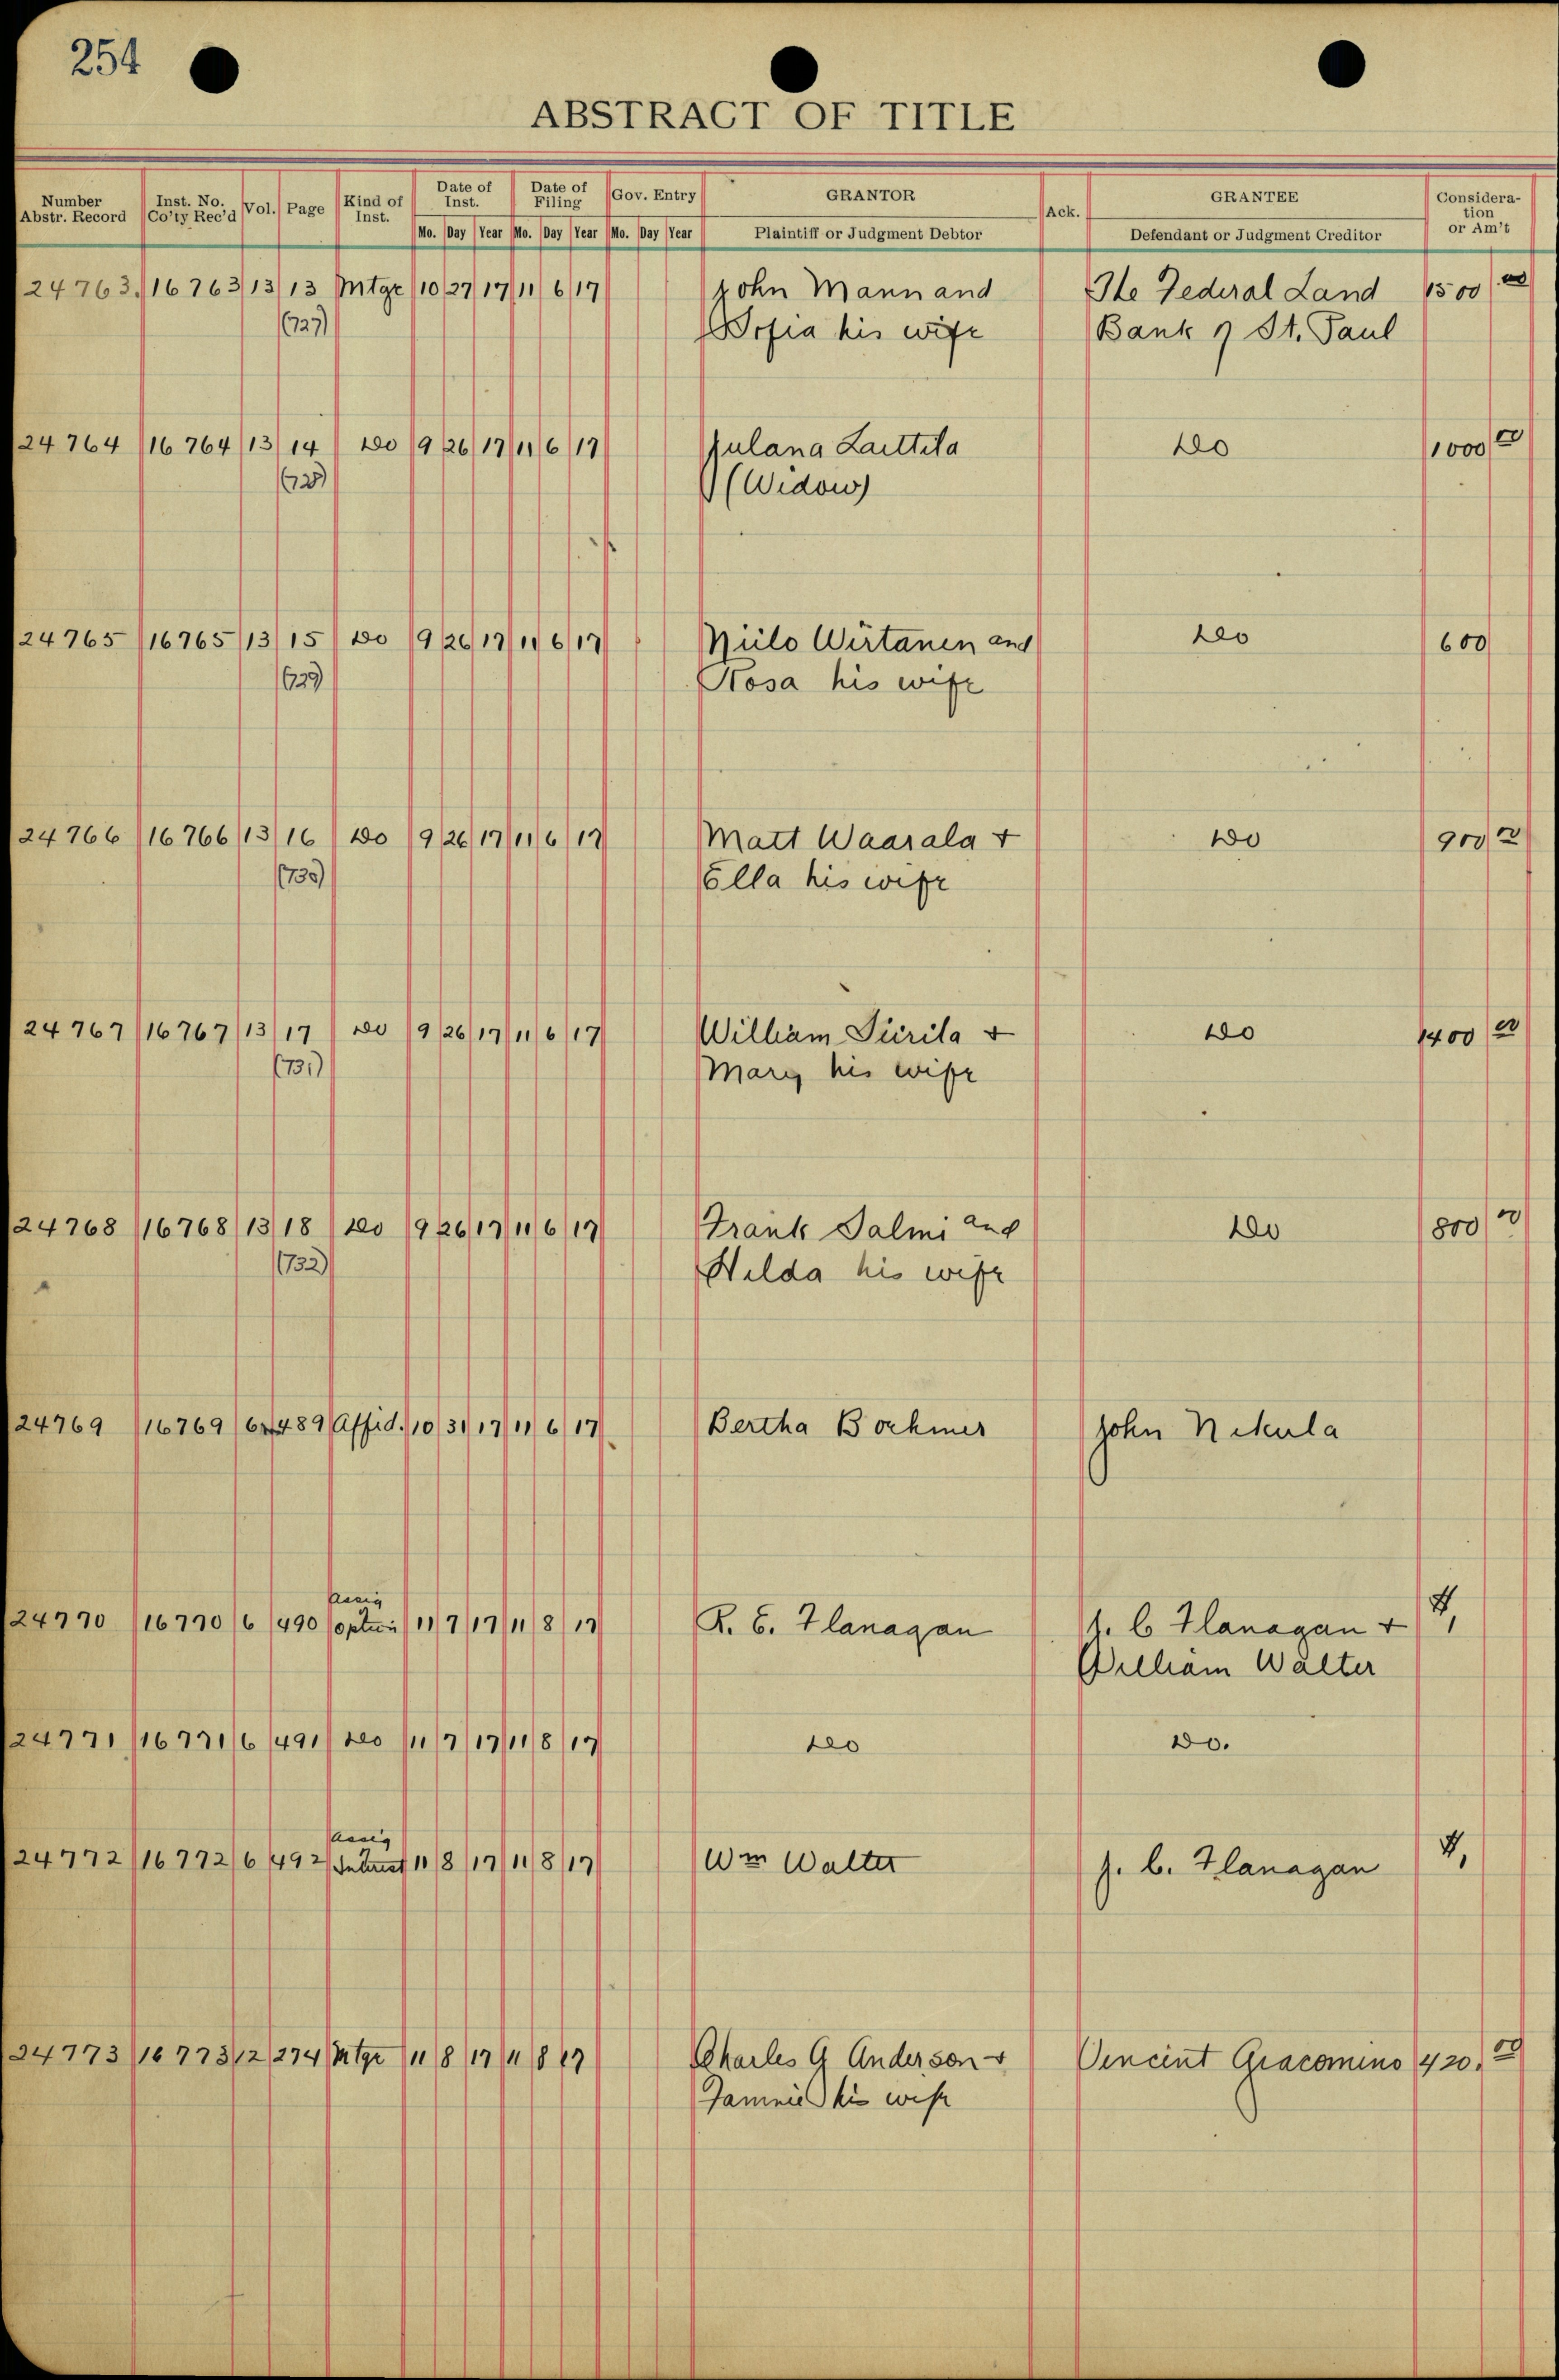 254
ABSTRACT OF TITLE
Number Abstr. Record Inst. No. Co'ty Rec'd Vol. Page Kind of Inst. Date of Inst. Date of Filing Gov. Entry GRANTOR Ack. GRANTEE Consideration or Am't
Mo. Day Year Mo. Day Year Mo. Day Year Plaintiff or Judgment Debtor Defendant or Judgment Creditor
24763 16763 13 13 Mtge 10 27 17 11 6 17 John Mann and The Federal Land 1500 00
(727) Sofia his wife Bank of St. Paul
24764 16764 13 14 do 9 26 17 11 6 17 Julana Lauttila do 1000 00
(728) (Widow)
24765 16765 13 15 do 9 26 17 11 6 17 Niilo Wirtanen and do 600
(729) Rosa his wife
24766 16766 13 16 do 9 26 17 11 6 17 Matt Waarala + do 900 00
(730) Ella his wife
24767 16767 13 17 do 9 26 17 11 6 17 William Piirila + do 1400 00
(731) Mary his wife
24768 16768 13 18 do 9 26 17 11 6 17 Frank Salmi and do 800 00
(732) Hilda his wife
24769 16769 6 489 Affid. 10 31 17 11 6 17 Bertha Boehmer John Nikula
Assig
24770 16770 6 490 option 11 7 17 11 8 17 R. E. Flanagan J. C Flanagan + $1,
William Walter
24771 16771 6 491 do 11 7 17 11 8 17 do do.
Assig
24772 16772 6 492 Interest 11 8 17 11 8 17 Wm Walter J. C. Flanagan $1,
24773 16773 12 274 Mtge 11 8 17 11 8 17 Charles G Anderson + Vencint Giacomino 420. 00
Fannie his wife